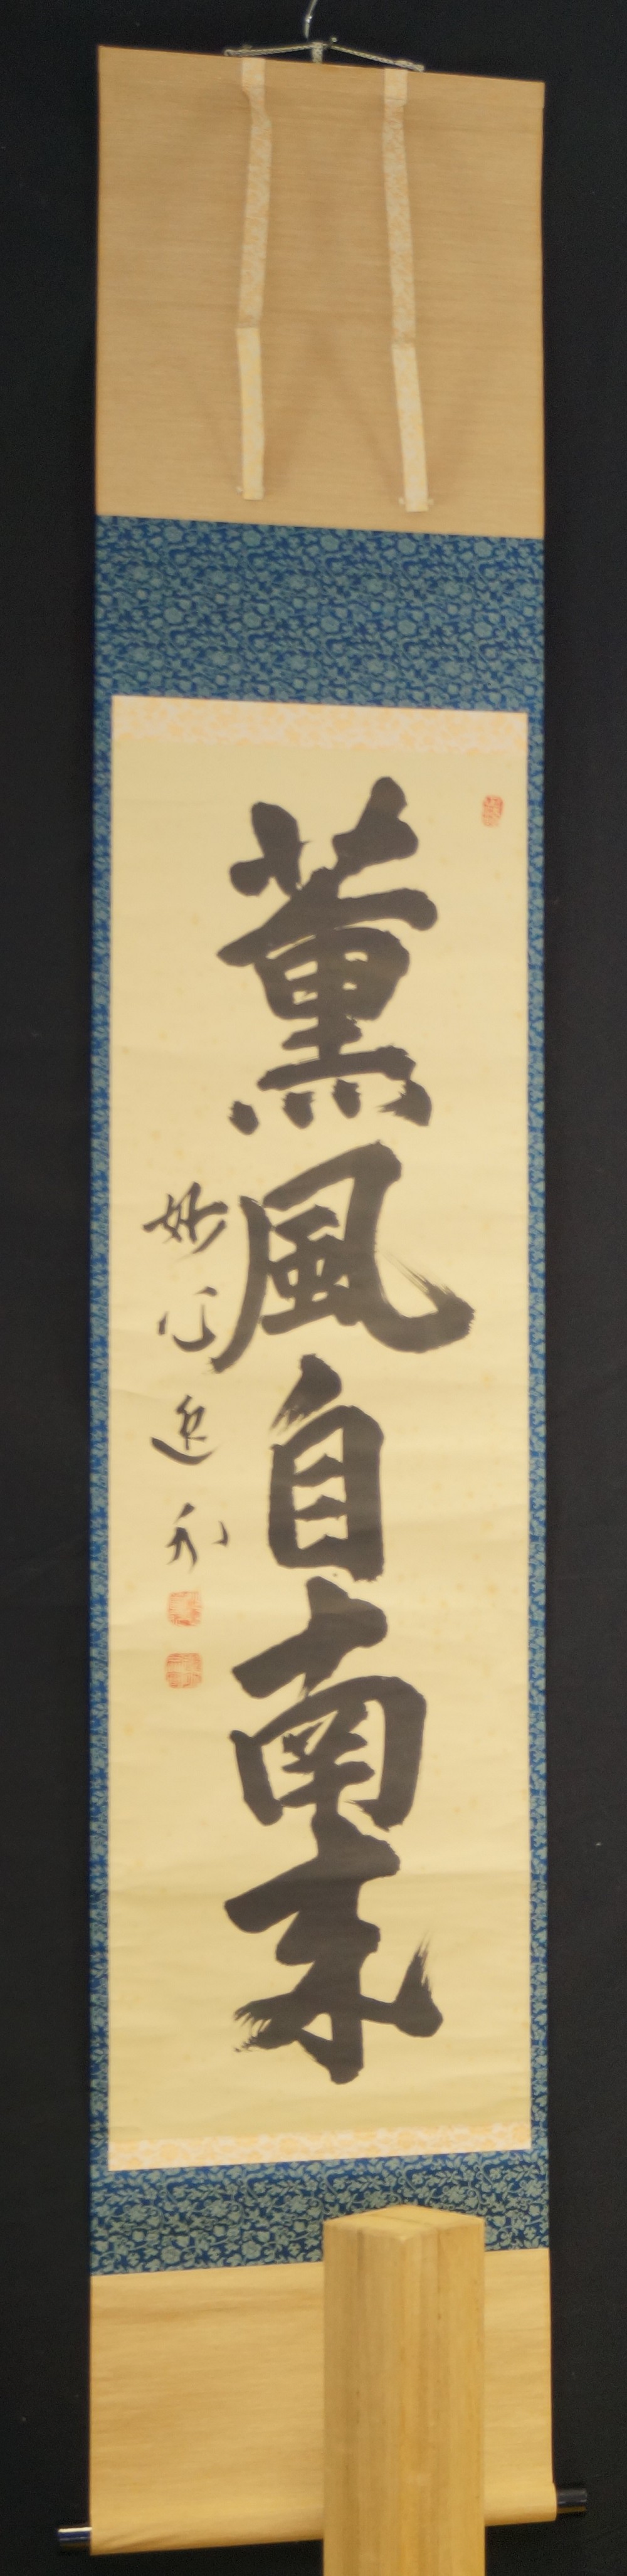 薫風自南来
妙心